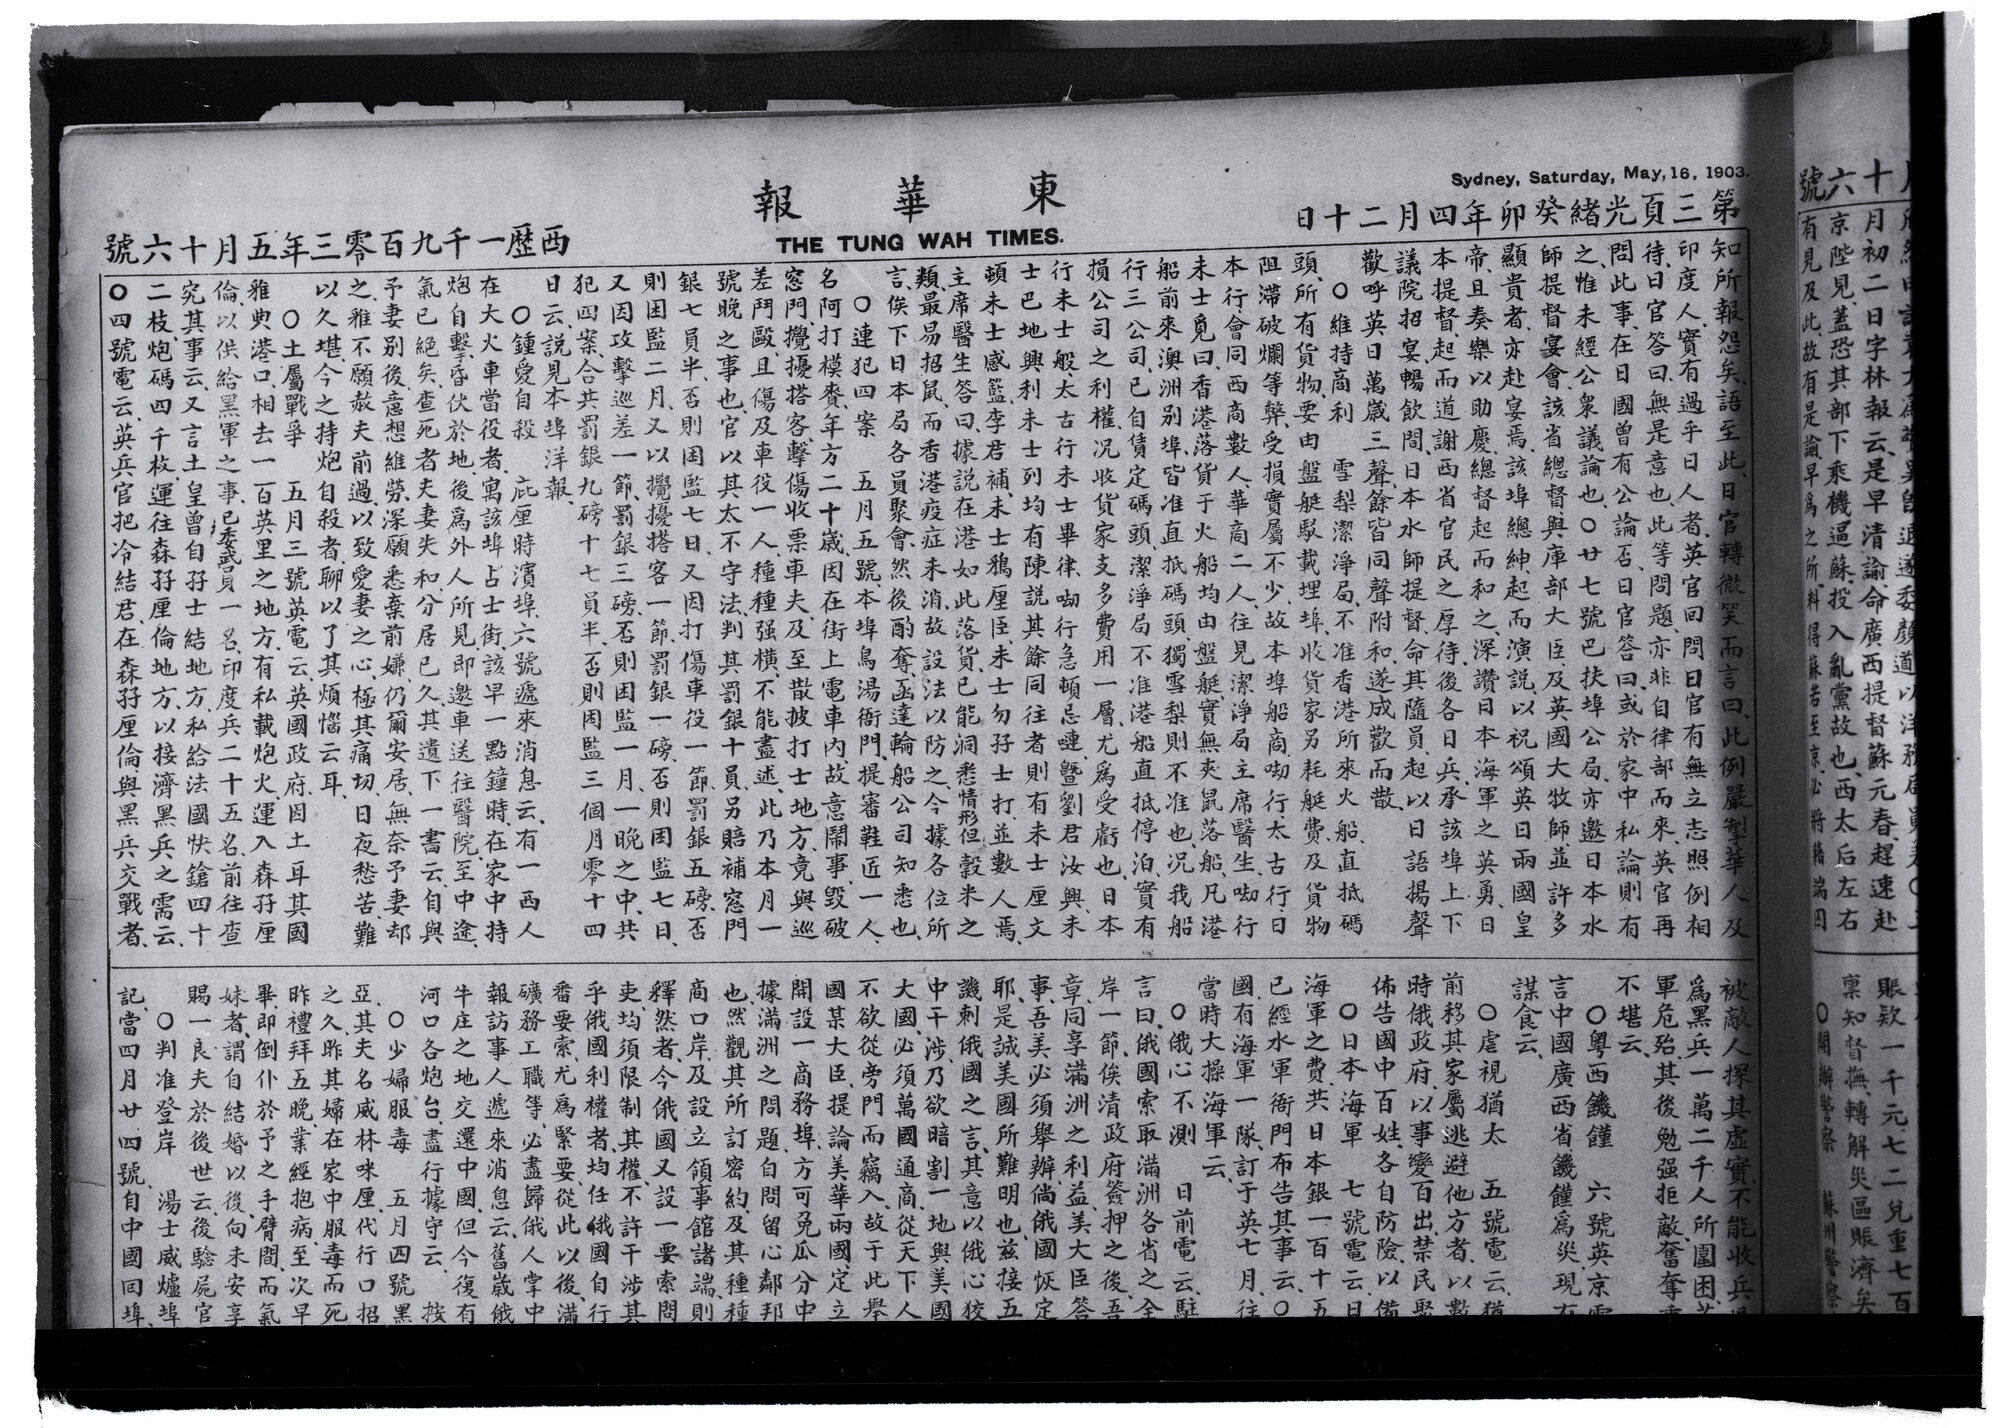 Sydney, Saturday, May, 16, 1903.
東華報
THE TUNG WAH TIMES.
第三頁光緒癸卯年四月二十日
西歷一千九百零三年五月十六號
知所報怨矣、語至此、日官轉微笑而言曰、此例嚴掣華人及
印度人、實有過乎日人者、英官回問日官有無立志照例相
待、日官答曰、無是意也、此等問題、亦非自律部而來、英官再
問此事、在日國曾有公論否、日官答曰、或於家中私論則有
之、惟未經公衆議論也、〇廿七號巴扶埠公局、亦邀日本水
師提督宴會、該省總督與庫部大臣、及英國大牧師、並許多
顯貴者、亦赴宴焉、該埠總紳、起而演說、以祝頌英日兩國皇
帝、且奏樂以助慶、總督起而和之、深讚日本海軍之英勇、日
本提督、起而道謝西省官民之厚待、後各日兵、承該埠上下
議院招宴、暢飲間、日本水師提督、命其隨員、起以日語揚聲
歡呼英日萬歲三聲、餘皆同聲附和、遂成歡而散、
〇維持商利 雪梨潔淨局、不准香港所來火船、直抵碼
頭、所有貨物、要由盤艇駁載埋埠、收貨家另耗艇費、及貨物
阻滯破爛等弊、受損實屬不少、故本埠船商㘭行、太古行、日
本行、會同西商數人、華商二人、往見潔淨局主席醫生、㘭行
未士覓曰、香港落貨于火船、均由盤艇、實無夾鼠落船、凡港
船前來澳洲別埠、皆准直抵碼頭、獨雪梨則不准也、況我船
行三公司、已自賃定碼頭、潔淨局不准港船直抵停泊、實有
損公司之利權、況收貨家支多費用一層、尤爲受虧也、日本
行未士般、太古行未士畢律、㘭行急頓忌嗹、暨劉君汝興、未
士巴地興利、未士列均有陳說、其餘同往者、則有未士厘文
頓、未士感籃、李君補、未士鴉厘臣、未士勿孖士打、並數人焉、
主席醫生答曰、據說在港如此落貨、已能洞悉情形、但穀米之
類、最易招鼠、而香港疫症未消、故設法以防之、今據各位所
言、俟下日本局各員聚會、然後酌奪、函達輪船公司知悉也、
〇連犯四案 五月五號、本埠鳥湯衙門、提審鞋匠一人、
名阿打模賚、年方二十歲、因在街上電車內、故意鬧事毀破
窓門、攪擾搭客、擊傷收票車夫、及至散披打士地方、竟與巡
差鬥毆、且傷及車役一人、種種强橫、不能盡述、此乃本月一
號晚之事也、官以其太不守法、判其罰銀十員、另賠補窓門
銀七員半、否則困監七日、又因打傷車役一節、罰銀五磅、否
則困監二月、又以攪擾搭客一節、罰銀一磅、否則困監七日、
又因攻擊巡差一節、罰銀三磅、否則困監一月、一晚之中、共
犯四案、合共罰銀九磅十七員半、否則困監三個月零十四
日云、說見本埠洋報、
〇鍾愛自殺 庇厘時濱埠、六號遞來消息云、有一西人
在大火車當役者、寓該埠占士街、該早一點鐘時、在家中持
炮自擊、昏伏於地、後爲外人所見、即邀車送往醫院、至中途、
氣已絕矣、查死者夫妻失和、分居已久、其遺下一書云、自與
予妻別後、意想維勞、深願悉棄前嫌、仍爾安居、無奈予妻却
之、雅不願赦夫前過、以致愛妻之心、極其痛切、日夜愁苦、難
以久堪、今之持炮自殺者、聊以了其煩惱云耳、
〇土屬戰爭 五月三號英電云、英國政府、因土耳其國
雅典港口、相去一百英里之地方、有私載炮火、運入森孖厘
倫、以供給黑軍之事、已委武員一名、印度兵二十五名、前往查
究其事云、又言土皇曾自孖士結地方、私給法國快鎗四十
二枝、炮碼四千枚、運往森孖厘倫地方、以接濟黑兵之需云、
〇四號電云、英兵官把冷結君、在森孖厘倫與黑兵交戰者、
被敵人探其虛實、不能收兵
爲黑兵一萬二千人所圍困
軍危殆、其後勉强拒敵、奮奪
不堪云、
〇粵西饑饉 六號英京電
言中國廣西省、饑饉爲災、現有
謀食云、
〇虐視猶太 五號電云、猶
前移其家屬逃避他方者、以數
時俄政府、以事變百出、禁民聚
佈告國中百姓、各自防險、以備
〇日本海軍 七號電云、日
海軍之費、共日本銀一百十五
已經水軍衙門布告其事云、〇
國有海軍一隊、訂于英七月、往
當時大操海軍云、
〇俄心不測 日前電云、駐
言曰、俄國索取滿洲各省之全
岸一節、俟清政府簽押之後、吾
章、同享滿洲之利益、美大臣答
事、吾美必須舉辦、倘俄國恢定
耶、是誠美國所難明也、茲接五
譏刺俄國之言、其意以俄心狡
中干涉、乃欲暗割一地、與美國
大國、必須萬國通商、從天下人
不欲從旁門而竊入、故于此舉
國某大臣、提論美華兩國、定立
開設一商務埠、方可免瓜分中
據滿洲之問題、自問留心鄰邦
也、然觀其所訂密約、及其種種
商口岸、及設立領事館諸端、則
釋然者、今俄國又設一要索問
吏、均須限制其權、不許干涉其
乎俄國利權者、均任俄國自行
番要索、尤爲緊要、從此以後、滿
礦務工職等、必盡歸俄人掌中
報訪事人遞來消息云、舊歲俄
牛庄之地、交還中國、但今復有
河口各炮台、盡行據守云、按
〇少婦服毒 五月四號黑
亞、其夫名威林咪厘、代行口招
之久、昨其婦在家中服毒而死
昨禮拜五晚、業經抱病、至次早
畢、即倒仆於予之手臂間、而氣
妹者、謂自結婚以後、向未安享
賜一良夫於後世云、後驗屍官
〇判准登岸 湯士威爐埠
記、當四月廿四號、自中國回埠、
月初二日字林報云、是早清諭、命廣西提督蘇元春、趕速赴
京陛見、蓋恐其部下乘機逼蘇、投入亂黨故也、西太后左右
有見及此、故有是諭早爲之所、料得蘇若至京、必將藉端囚
賬欵一千元七二兌重七百
稟知督撫、轉解災區賬濟矣
〇開辦警察 蘇州警察